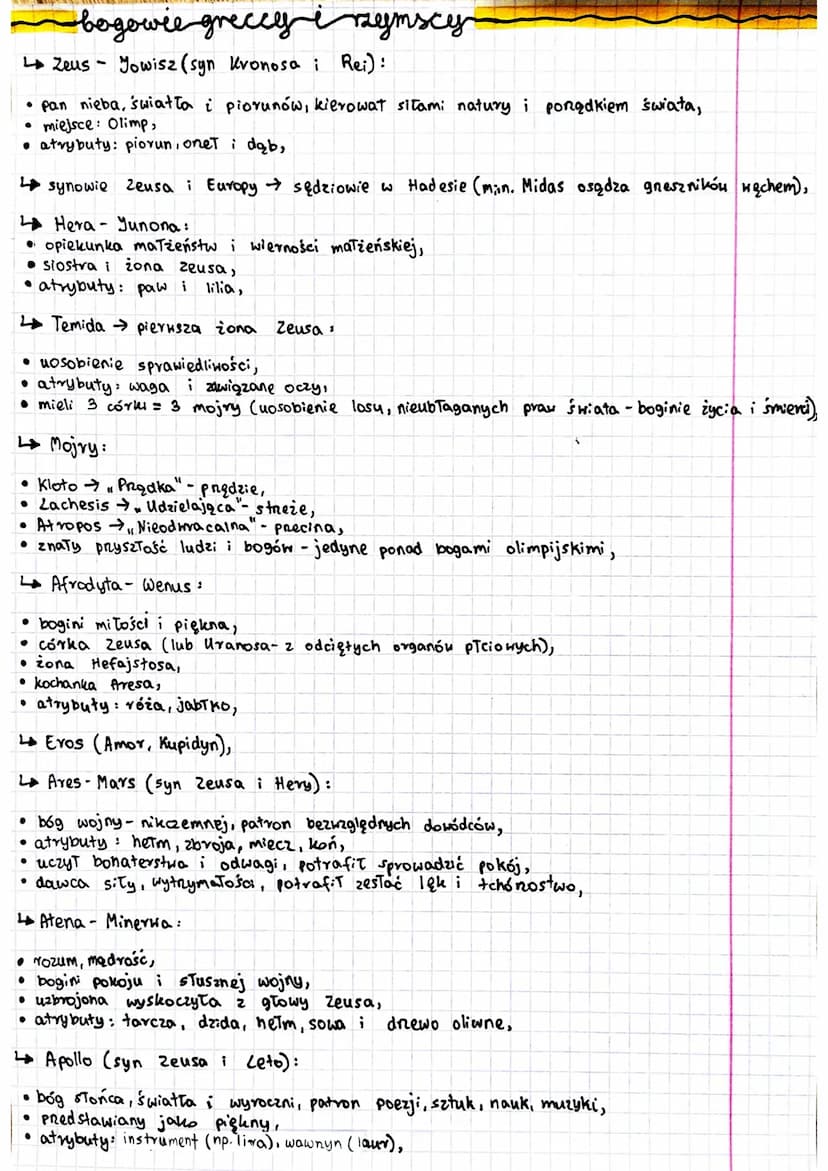 bogowie greccy i rzymscy
↳ Zeus - Jowisz (syn Kronosa i Rei):
• pan nieba, światła i piorunów, kierował siłami natury i porządkiem świata,
• miejsce: Olimp,
• atrybuty: piorun, orzeł i dąb,
↳ synowie Zeusa i Europy → sędziowie w Hadesie (m.in. Midas osądza grzeszników węchem),
↳ Hera - Junona:
• opiekunka małżeństw i wierności małżeńskiej,
• siostra i żona Zeusa,
• atrybuty: paw i lilia,
↳ Temida → pierwsza żona Zeusa:
• uosobienie sprawiedliwości,
• atrybuty: waga i zawiązane oczy,
• mieli 3 córki = 3 mojry (uosobienie losu, nieubłaganych praw świata - boginie życia i śmierci),
↳ Mojry:
• Kloto → „Prządka" - przędzie,
• Lachesis → „Udzielająca" - strzeże,
• Atropos → „Nieodwracalna" - przecina,
• znały przyszłość ludzi i bogów - jedyne ponad bogami olimpijskimi,
↳ Afrodyta - Wenus:
• bogini miłości i piękna,
• córka Zeusa (lub Uranosa - z odciętych organów płciowych),
• żona Hefajstosa,
• kochanka Aresa,
• atrybuty: róża, jabłko,
↳ Eros (Amor, Kupidyn),
↳ Ares - Mars (syn Zeusa i Hery):
• bóg wojny - nikczemnej, patron bezwzględnych dowódców,
• atrybuty: hełm, zbroja, miecz, koń,
• uczył bohaterstwa i odwagi, potrafił sprowadzić pokój,
• dawca siły, wytrzymałości, potrafił zesłać lęk i tchórzostwo,
↳ Atena - Minerwa:
• rozum, mądrość,
• bogini pokoju i słusznej wojny,
• uzbrojona wyskoczyła z głowy Zeusa,
• atrybuty: tarcza, dzida, hełm, sowa i drzewo oliwne,
↳ Apollo (syn Zeusa i Leto):
• bóg słońca, światła i wyroczni, patron poezji, sztuk, nauk, muzyki,
• przedstawiany jako piękny,
• atrybuty: instrument (np. lira), wawrzyn (laur),